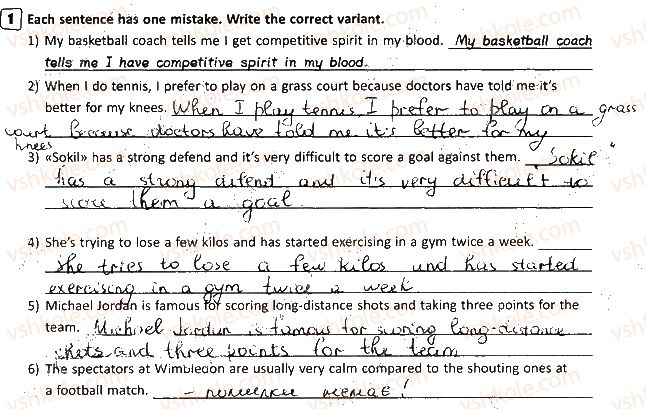 1 Each sentence has one mistake. Write the correct variant.
1) My basketball coach tells me I get competitive spirit in my blood. My basketball coach
tells me I have competitive spirit in my blood.
2) When I do tennis, I prefer to play on a grass court because doctors have told me it's
better for my knees. When I play tennis, I prefer to play on a grass
court because doctors have told me it's better for my
knees
3) «Sokil» has a strong defend and it's very difficult to score a goal against them. „Sokil"
has a strong difend and it's very difficult to
score them a goal
4) She's trying to lose a few kilos and has started exercising in a gym twice a week.
she tries to lose a few kilos and has started
exercising in a gym twice a week
5) Michael Jordan is famous for scoring long-distance shots and taking three points for the
team. Michael Jordan is famous for scoring long-distance
shots and three points for the team
6) The spectators at Wimbledon are usually very calm compared to the shouting ones at
a football match. – помилки немає!